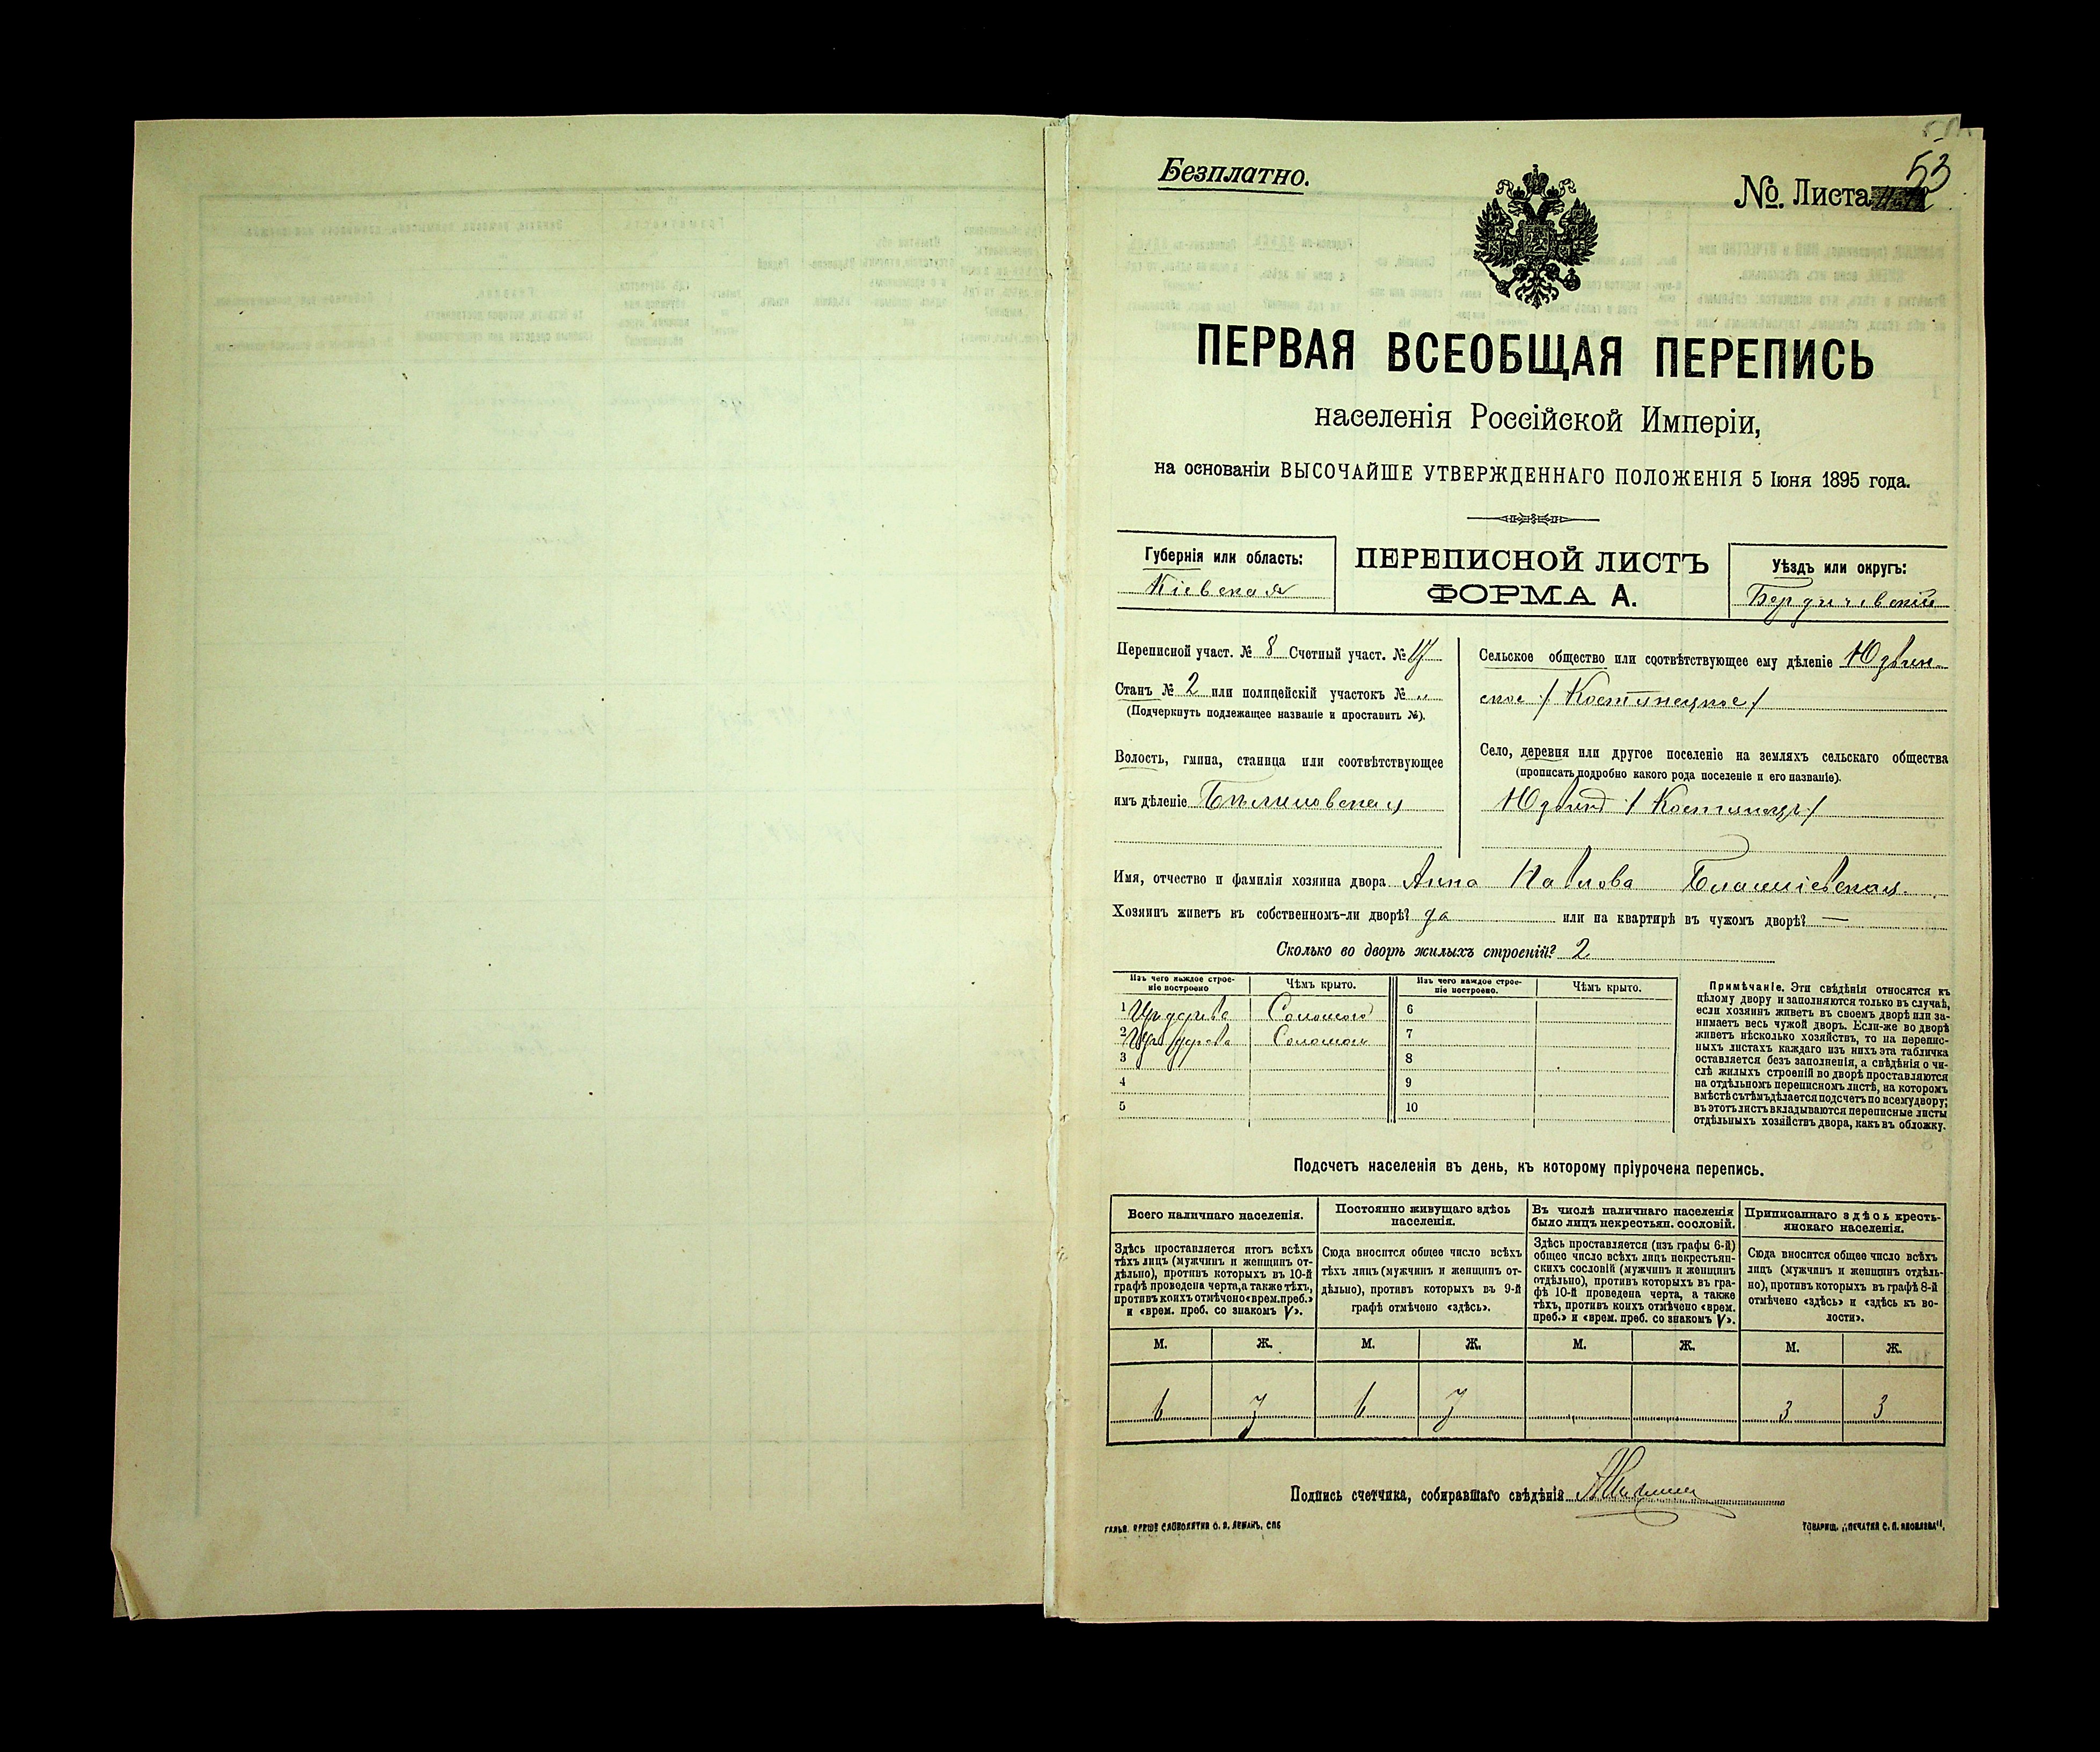 53
Безплатно.
№. Листа
ПЕРВАЯ ВСЕОБЩАЯ ПЕРЕПИСЬ
населенія Россійской Имперіи,
на основаніи ВЫСОЧАЙШЕ УТВЕРЖДЕННАГО ПОЛОЖЕНІЯ 5 Іюня 1895 года.
Губернія или область:
Кіевская
ПЕРЕПИСНОЙ ЛИСТЪ
ФОРМА А.
Уѣздъ или округъ:
Бердичевскій
Переписной участ. № 8 Счетный участ. № 17
Станъ № 2 или полицейскій участокъ № „
(Подчеркнуть подлежащее названіе и проставить №).
Волость, гмина, станица или соотвѣтствующее
имъ дѣленіе Бѣлиловская
Сельское общество или соотвѣтствующее ему дѣленіе Юзвин-
ское / Костянецкое /
Село, деревня или другое поселеніе на земляхъ сельскаго общества
(прописать подробно какого рода поселеніе и его названіе).
Юзвинъ / Костянецъ /
Имя, отчество и фамилія хозяина двора Анна Павлова
Хозяинъ живетъ въ собственномъ-ли дворѣ? да или на квартирѣ въ чужомъ дворѣ? —
Сколько во дворѣ жилыхъ строеній? 2
Изъ чего каждое строе-
ніе построено
Чѣмъ крыто.
Изъ чего каждое строе-
ніе построено.
Чѣмъ крыто.
1 Изъ дерева Соломою 6
2 Изъ дерева Соломою 7
3 8
4 9
5 10
Примѣчаніе. Эти свѣдѣнія относятся къ
цѣлому двору и заполняются только въ случаѣ,
если хозяинъ живетъ въ своемъ дворѣ или за-
нимаетъ весь чужой дворъ. Если-же во дворѣ
живетъ нѣсколько хозяйствъ, то на перепис-
ныхъ листахъ каждаго изъ нихъ эта табличка
оставляется безъ заполненія, а свѣдѣнія о чи-
слѣ жилыхъ строеній во дворѣ проставляются
на отдѣльномъ переписномъ листѣ, на которомъ
вмѣстѣ съ тѣмъ дѣлается подсчетъ по всему двору;
въ этотъ листъ вкладываются переписные листы
отдѣльныхъ хозяйствъ двора, какъ въ обложку.
Подсчетъ населенія въ день, къ которому пріурочена перепись.
Всего наличнаго населенія.
Здѣсь проставляется итогъ всѣхъ
тѣхъ лицъ (мужчинъ и женщинъ от-
дѣльно), противъ которыхъ въ 10-й
графѣ проведена черта, а также тѣхъ,
противъ коихъ отмѣчено «врем. преб.»
и «врем. преб. со знакомъ V».
Постоянно живущаго здѣсь
населенія.
Сюда вносится общее число всѣхъ
тѣхъ лицъ (мужчинъ и женщинъ от-
дѣльно), противъ которыхъ въ 9-й
графѣ отмѣчено «здѣсь».
Въ числѣ наличнаго населенія
было лицъ некрестьян. сословій.
Здѣсь проставляется (изъ графы 6-й)
общее число всѣхъ лицъ некрестьян-
скихъ сословій (мужчинъ и женщинъ
отдѣльно), противъ которыхъ въ гра-
фѣ 10-й проведена черта, а также
тѣхъ, противъ коихъ отмѣчено «врем.
преб.» и «врем. преб. со знакомъ V».
Приписаннаго здѣсь кресть-
янскаго населенія.
Сюда вносится общее число всѣхъ
лицъ (мужчинъ и женщинъ отдѣль-
но), противъ которыхъ въ графѣ 8-й
отмѣчено «здѣсь» и «здѣсь въ во-
лости».
М. Ж. М. Ж. М. Ж. М. Ж.
6 7 6 7 3 3
Подпись счетчика, собиравшаго свѣдѣнія
ТОВАРИЩ. „ПЕЧАТНЯ С. П. ЯКОВЛЕВА“.